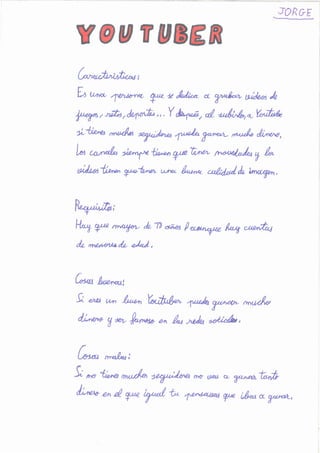 JORGE
YOUTUBER
Características:
Es una persona que se dedica a grabar vídeos de
juegos, retos, deportes... Y después, al subirlos a Youtube
si tienes muchos seguidores puedes ganar mucho dinero,
Los canales siempre tienen que tener novedades y los
vídeos tienen que tener una buena calidad de imagen.
Requisitos:
Hay que mayor de 13 años aunque hay cuentas
de menores de edad.
Cosas buenas:
Si eres un buen Youtuber puedes ganar mucho
dinero y ser famoso en las redes
Cosas malas:
Si no tienes muchos seguidores no vas a ganar tanto
dinero en el que igual tu pensabas que ibas a ganar.